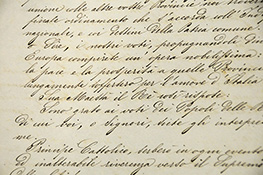 unione alle altre vostre Provincie non
presente ordinamento che l'accorda coll'
nazionale, e coi destini della Patria comune.
Sire, i nostri voti, propugnandoli
Europa compirete un'opera nobilissima
la pace e la prosperità a quelle Provincie
lungamente sofferto per l'amore d'Italia
Sua Maestà il Re così rispose
Sono grato ai voti dei Popoli delle
di cui voi, o signori, siete gli interpre
me.
Principe Cattolico, serberò in ogni evento
ed inalterabile riverenza verso il Supremo